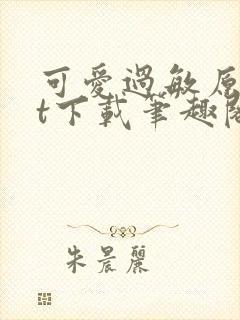 可愛過敏原
t下載筆趣閣
朱晨麗